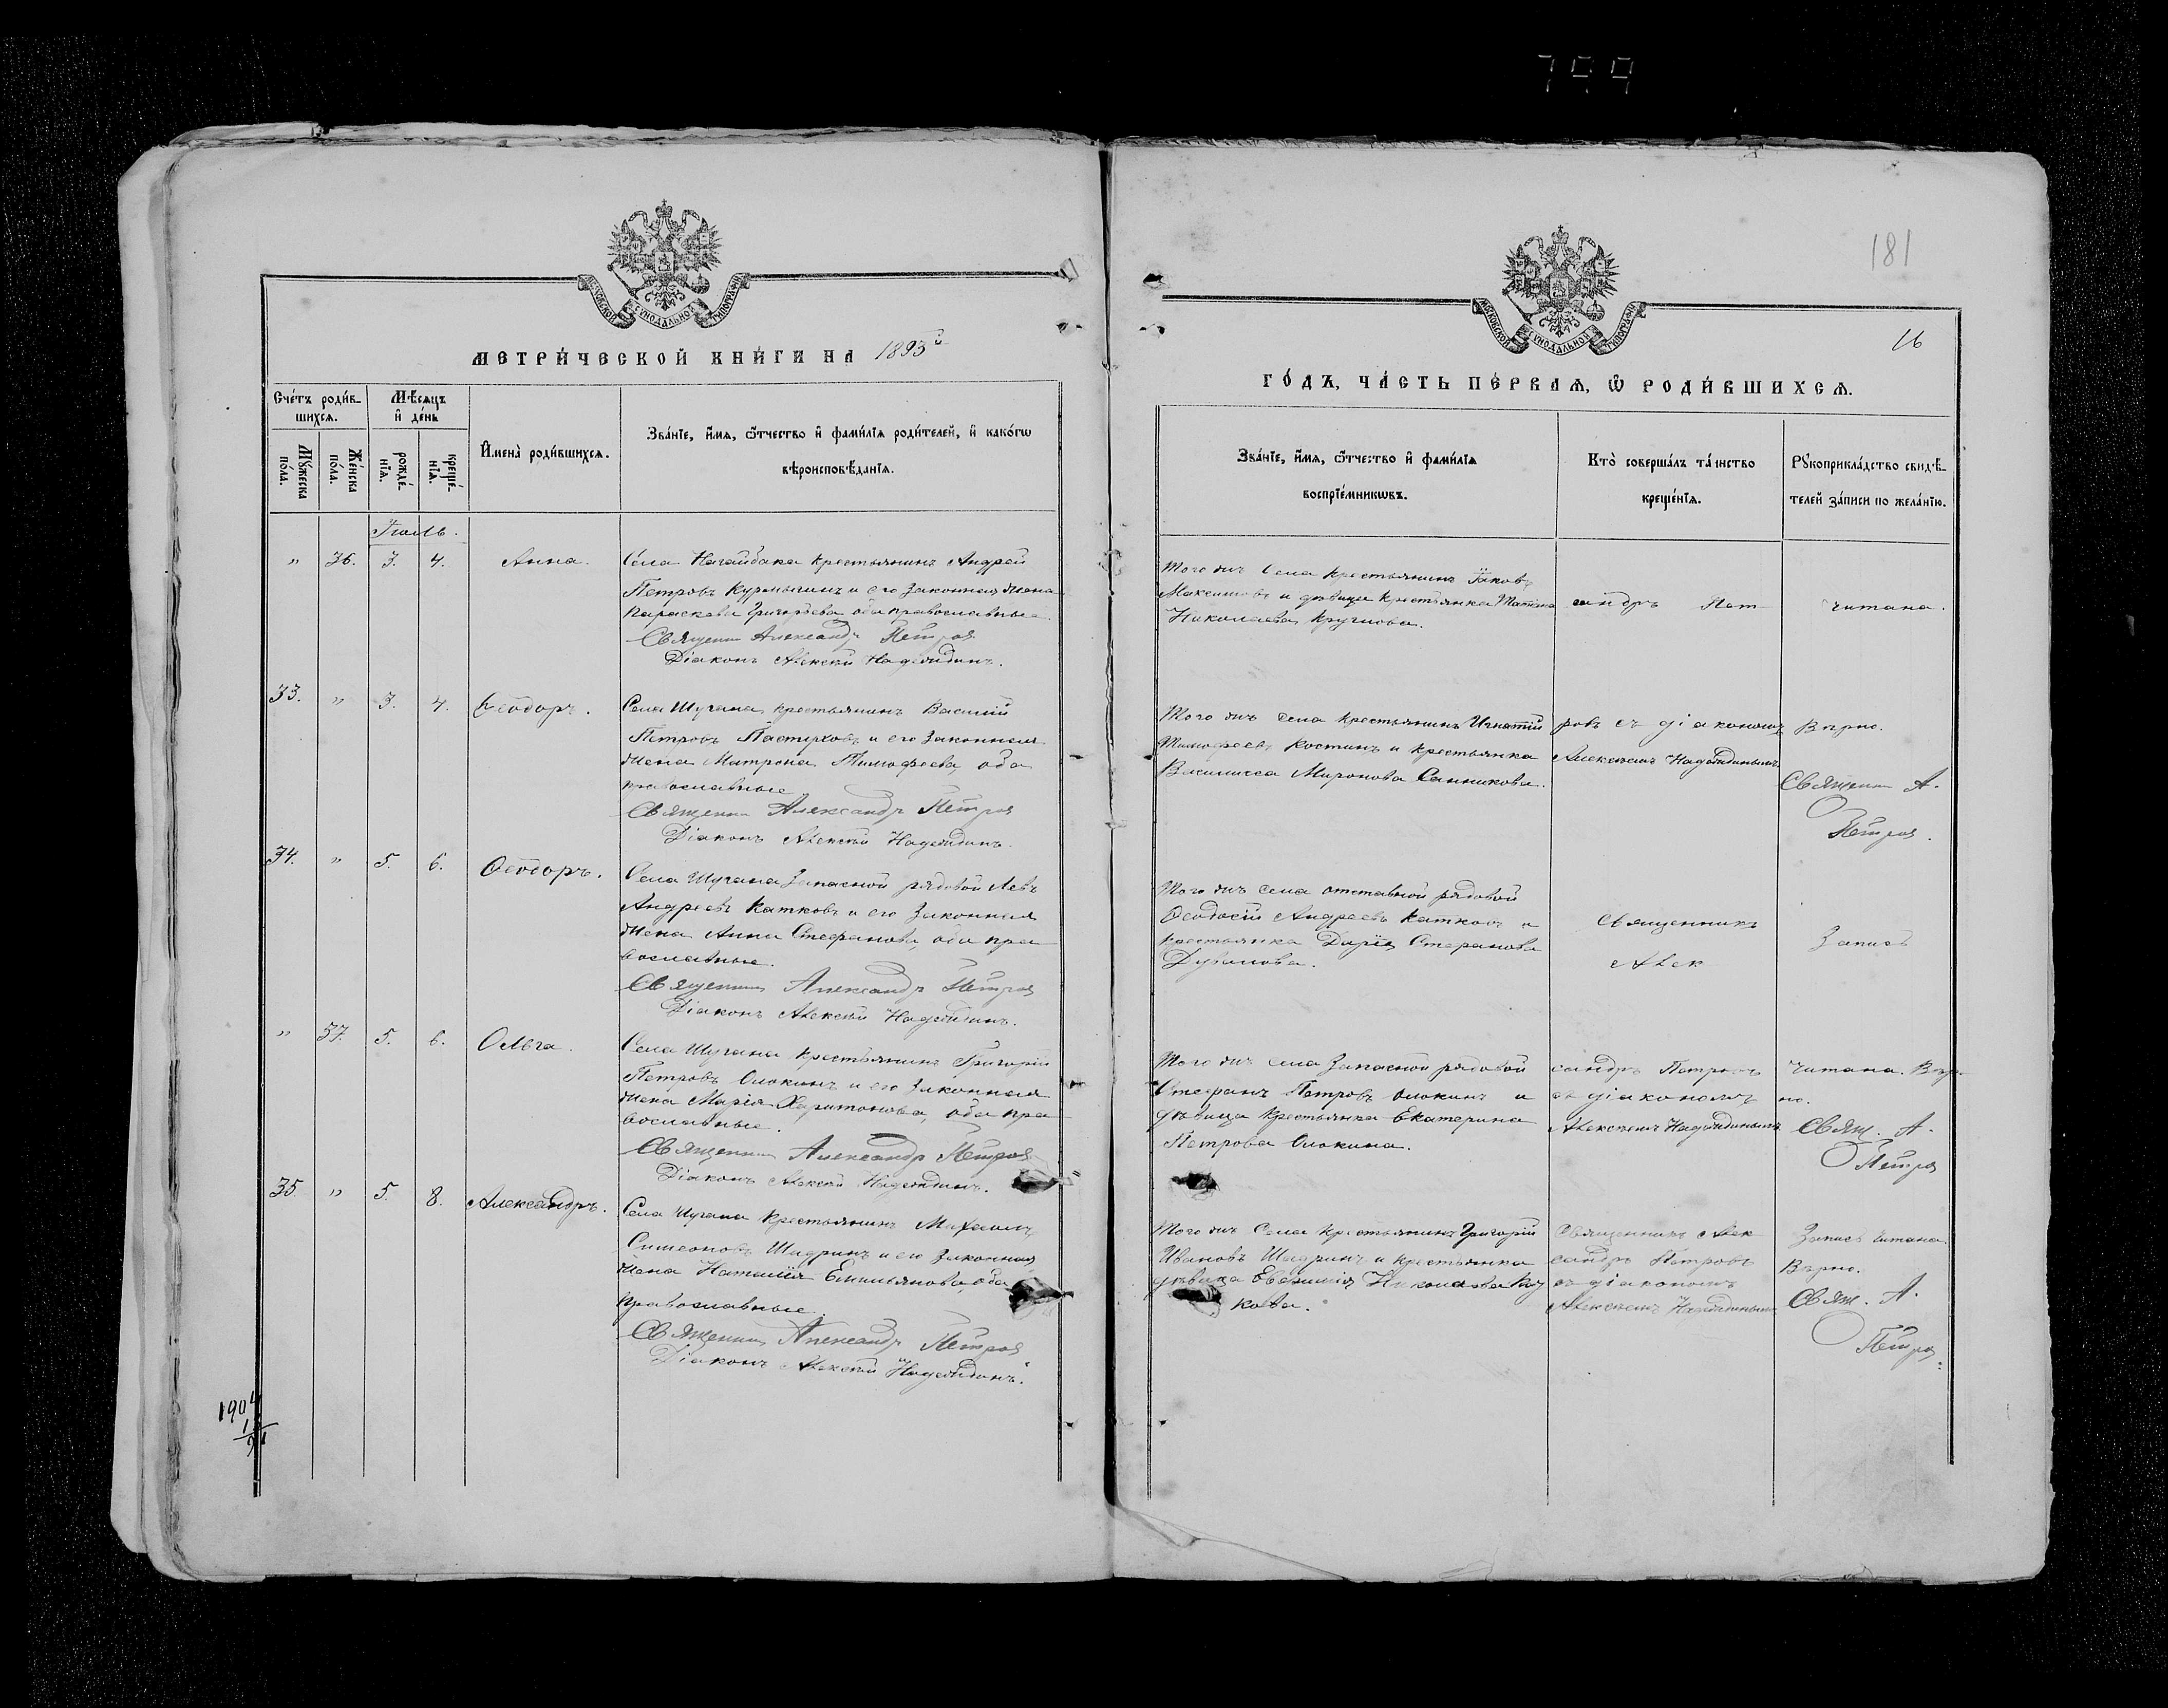 799
181
МОСКОВСКОЙ СѴНОДАЛЬНОЙ ТИПОГРАФІИ
МОСКОВСКОЙ СѴНОДАЛЬНОЙ ТИПОГРАФІИ
16
МЕТРИ́ЧЕСКОЙ КНИ́ГИ НА 1893й
ГО́ДЪ, ЧА́СТЬ ПЕ́РВАѦ, Ѽ РОДИ́ВШИХСѦ.
Сче́тъ роди́в-
шихсѧ.
Мꙋ́жеска по́ла.
Же́нска по́ла.
Мѣ́сѧцъ
и҆ де́нь
рожде́-нїѧ.
креще́-нїѧ.
И҆мена̀ роди́вшихсѧ.
Зва́нїе, и҆́мѧ, ѻ҆́тчество и҆ фами́лїѧ роди́телей, и҆ како́гѡ
вѣроисповѣ́данїѧ.
Зва́нїе, и҆́мѧ, ѻ҆́тчество и҆ фами́лїѧ
воспрїе́мникѡвъ.
Кто̀ соверша́лъ та́инство
креще́нїѧ.
Рꙋкоприкла́дство свидѣ́-
телей за́писи по жела́нїю.
Іюль.
" 36. 3. 4. Анна.
Села Нагайбака крестьянинъ Андрей
Петровъ Курмыгинъ и его законная жена
Параскева Григорьева оба православные.
Священни Александръ Петров
Діаконъ Алексѣй Надеждинъ.
Того жъ села крестьянинъ Іаковъ
Максимовъ и дѣвица крестьянка Татіана
Николаева Круглова.
сандръ Пет
читана.
33. " 3. 4. Ѳеодоръ.
Села Шугана крестьянинъ Василій
Петровъ Пастуховъ и его законная
жена Матрона Тимофеева, оба
православные
Священни Александръ Петров
Діаконъ Алексѣй Надеждинъ.
Того жъ села крестьянинъ Игнатій
Тимофеевъ Костинъ и крестьянка
Василисса Миронова Санникова.
ровъ съ діакономъ
Алексѣемъ Надеждинымъ
Вѣрно.
Священни А.
Петров.
34. " 5. 6. Ѳеодоръ.
Села Шугана запасной рядовой Левъ
Андреевъ Катковъ и его законная
жена Анна Стефанова, оба пра
вославные.
Священни Александръ Петров
Діаконъ Алексѣй Надеждинъ.
Того жъ села отставной рядовой
Ѳеодосій Андреевъ Катковъ и
крестьянка Дарія Стефанова
Священникъ
Алек
Запись
" 37. 5. 6. Ольга.
Села Шугана крестьянинъ Григорій
Петровъ Олокинъ и его законная
жена Марія Харитонова, оба пра
вославные.
Священни Александръ Петров
Діаконъ Алексѣй Надеждинъ.
Того жъ села запасной рядовой
Стефанъ Петровъ Олокинъ и
дѣвица крестьянка Екатерина
Петрова Олокина.
сандръ Петровъ
съ діакономъ
Алексѣемъ Надеждинымъ
читана. Вѣр-
но.
Свящ. А.
Петров
35. " 5. 8. Александръ.
Села Шугана крестьянинъ Михаилъ
Симеоновъ Шадринъ и его законная
жена Наталія Емильянова, оба
православные.
Священни Александръ Петров
Діаконъ Алексѣй Надеждинъ.
Того жъ села крестьянинъ Григорій
Ивановъ Шадринъ и крестьянка
дѣвица Евфимія Николаева
кова.
Священникъ Алек
сандръ Петровъ
съ діакономъ
Алексѣемъ Надеждинымъ
Запись читана.
Вѣрно.
Свящ. А.
Петров
1904